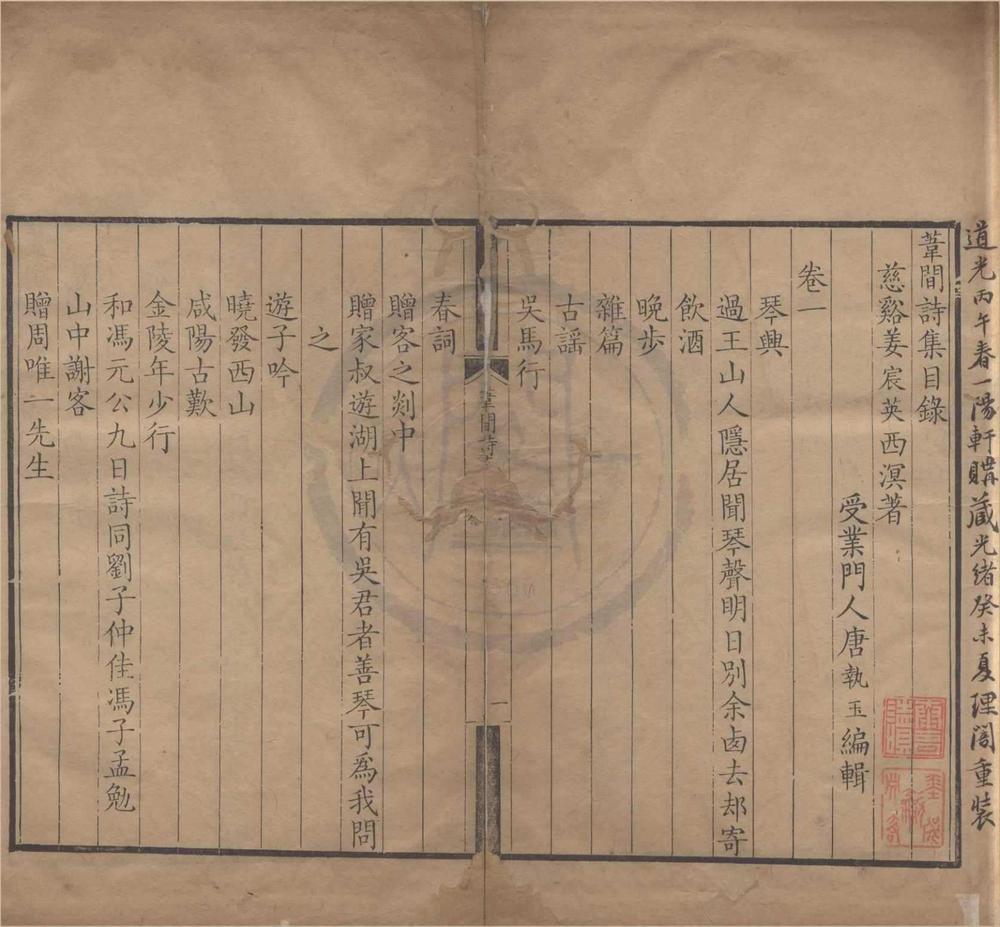 道光丙午春一陽軒購藏光緒癸未夏理閣重裝
葦間詩集目錄
慈谿姜宸英西溟著
受業門人唐執玉編輯
卷一
琴興
過王山人隱居聞琴聲明日別余卤去却寄
飲酒
晚步
雜篇
古謡
吳馬行
葦間詩
一
春詞
贈客之剡中
贈家叔遊湖上聞有吳君者善琴可爲我問
之
遊子吟
曉發西山
咸陽古歎
金陵年少行
和馮元公九日詩同劉子仲佳馮子孟勉
山中謝客
贈周唯一先生